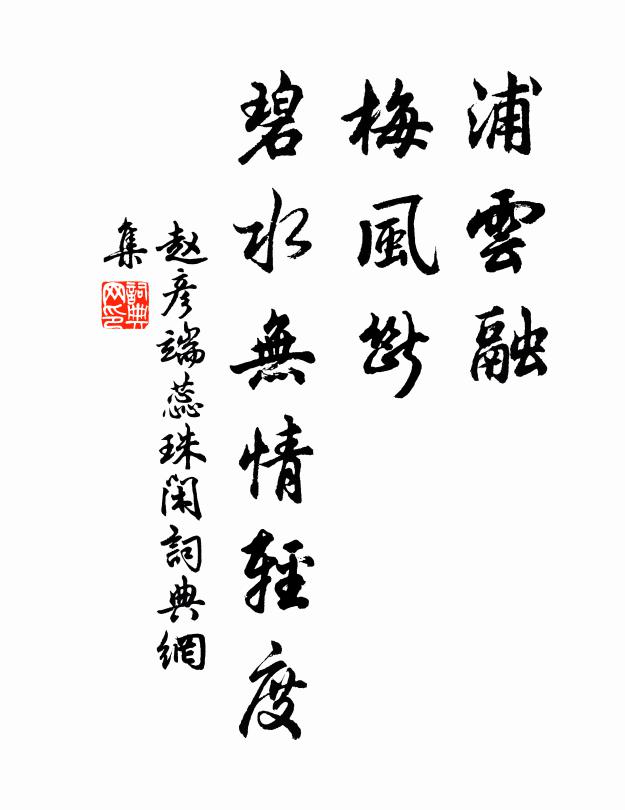 浦雲融
梅風断
碧水無情輕度
赵彦端蕊珠閑詞典網
集
詞典
网印